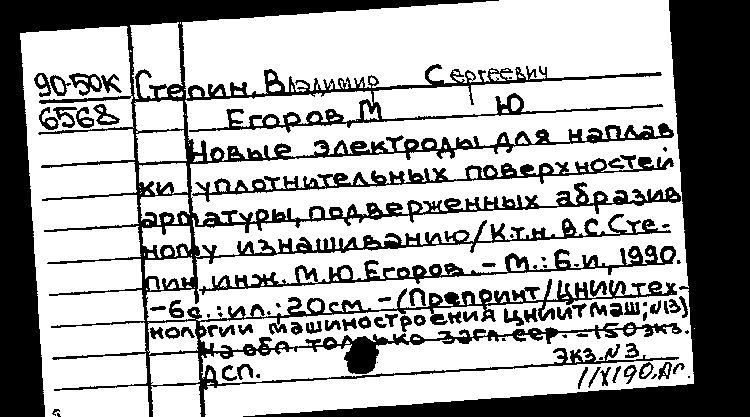 90-50К Степин, Владимир Сергеевич
6568 Егоров, М Ю
Новые электроды для наплав
ки уплотнительных поверхностей
арматуры, подверженных абразив
ному изнашиванию/К.т.н. В.С. Сте-
пин, инж. М.Ю. Егоров. – М.: Б.и., 1990.
-6с.: ил.; 20см. – (Препринт/ЦНИИ тех-
нологии машиностроения ЦНИИТМАШ; N13)
На обл. только загл. сер. – 150 экз.
Экз. N3.
ДСП.